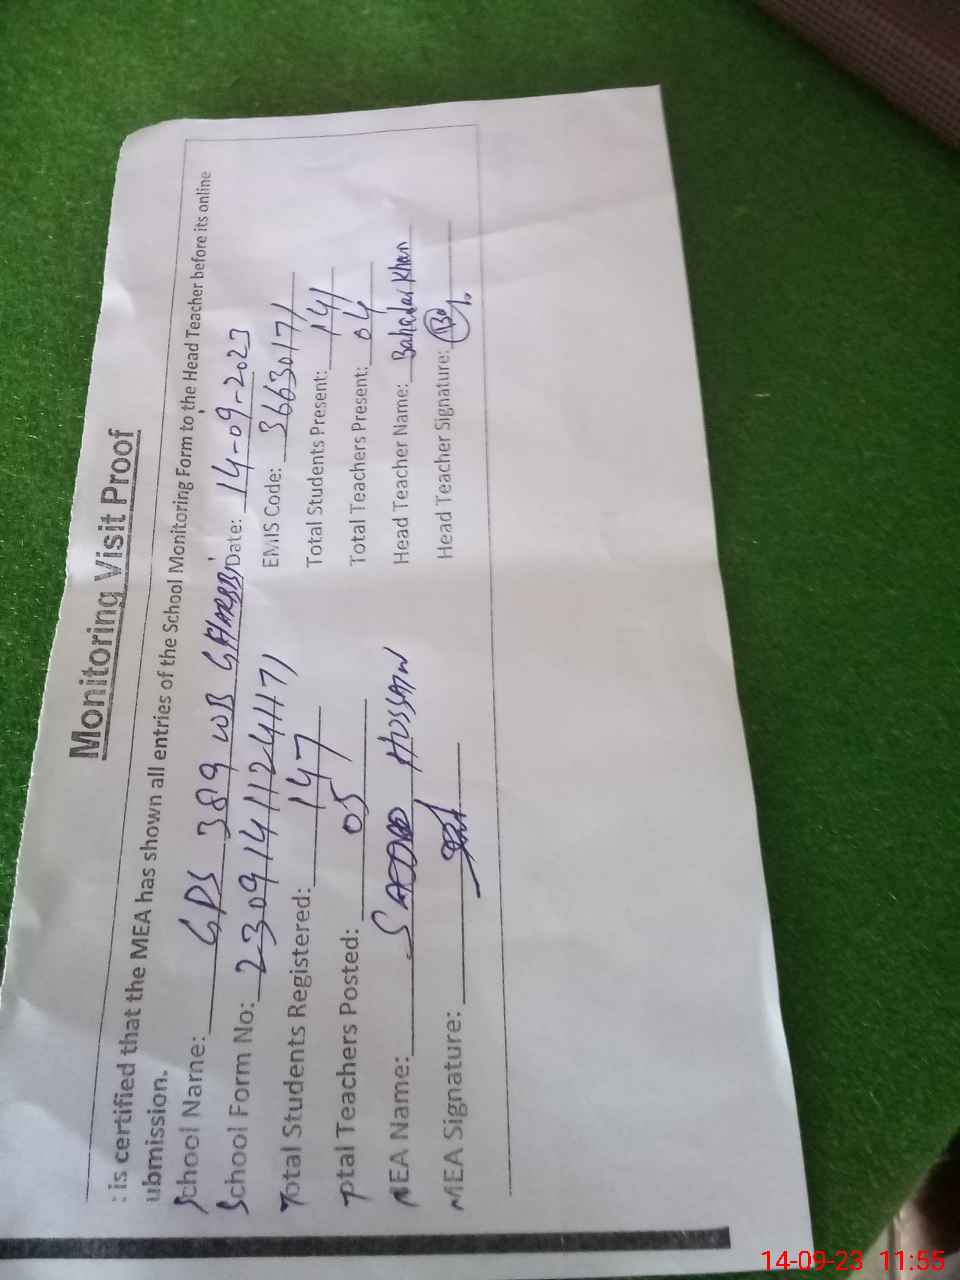 Monitoring Visit Proof
is certified that the MEA has shown all entries of the School Monitoring Form to the Head Teacher before its online
ubmission.
School Name: GPS 389 WB GHARBI Date: 14-09-2023
School Form No: 23091411241171 EMIS Code: 36630171
Total Students Registered: 147 Total Students Present: 141
otal Teachers Posted: 05 Total Teachers Present: 04
MEA Name: HUSSAIN Head Teacher Name: Bahadar Khan
MEA Signature: Head Teacher Signature:
14-09-23 11:55